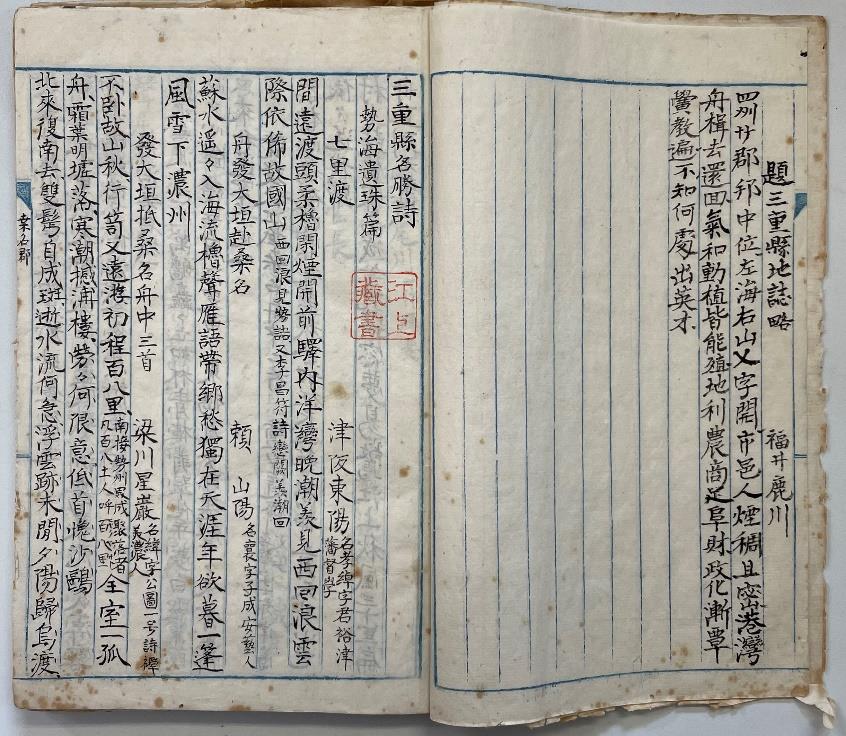 題三重縣地誌略　福井鹿川
四州廿郡邦中位左海右山乂字開市邑人煙稠且密港灣
舟楫去還回氣和動植皆能殖地利農商足阜財政化漸覃
黌教遍不知何處出英才
三重縣名勝詩
勢海遺珠篇
江上藏書
七里渡　津阪東陽名孝綽字君裕津藩督學
間遠渡頭柔櫓開煙開前驛內洋灣晚潮羨見西回浪雲
際依俙故國山西回浪見勢語又李昌符詩戀闕羨潮回
舟發大垣赴桑名　賴山陽名襄字子成安藝人
蘇水遥々入海流櫓聲雁語帶鄉愁獨在天涯年欲暮一篷
風雪下濃州
發大垣抵桑名舟中三首　梁川星巖名緯字公圖一号詩禪美濃人
不臥故山秋行笴又遠游初程百八里南接勢州界成聚落者凡百八土人呼百八里全室一孤
舟霜葉明壚落寒潮撼浦樓勞々何限意低首愧沙鷗
北來復南去雙鬢自成斑逝水流何急浮雲跡未閒夕陽歸鳥渡
桑名郡